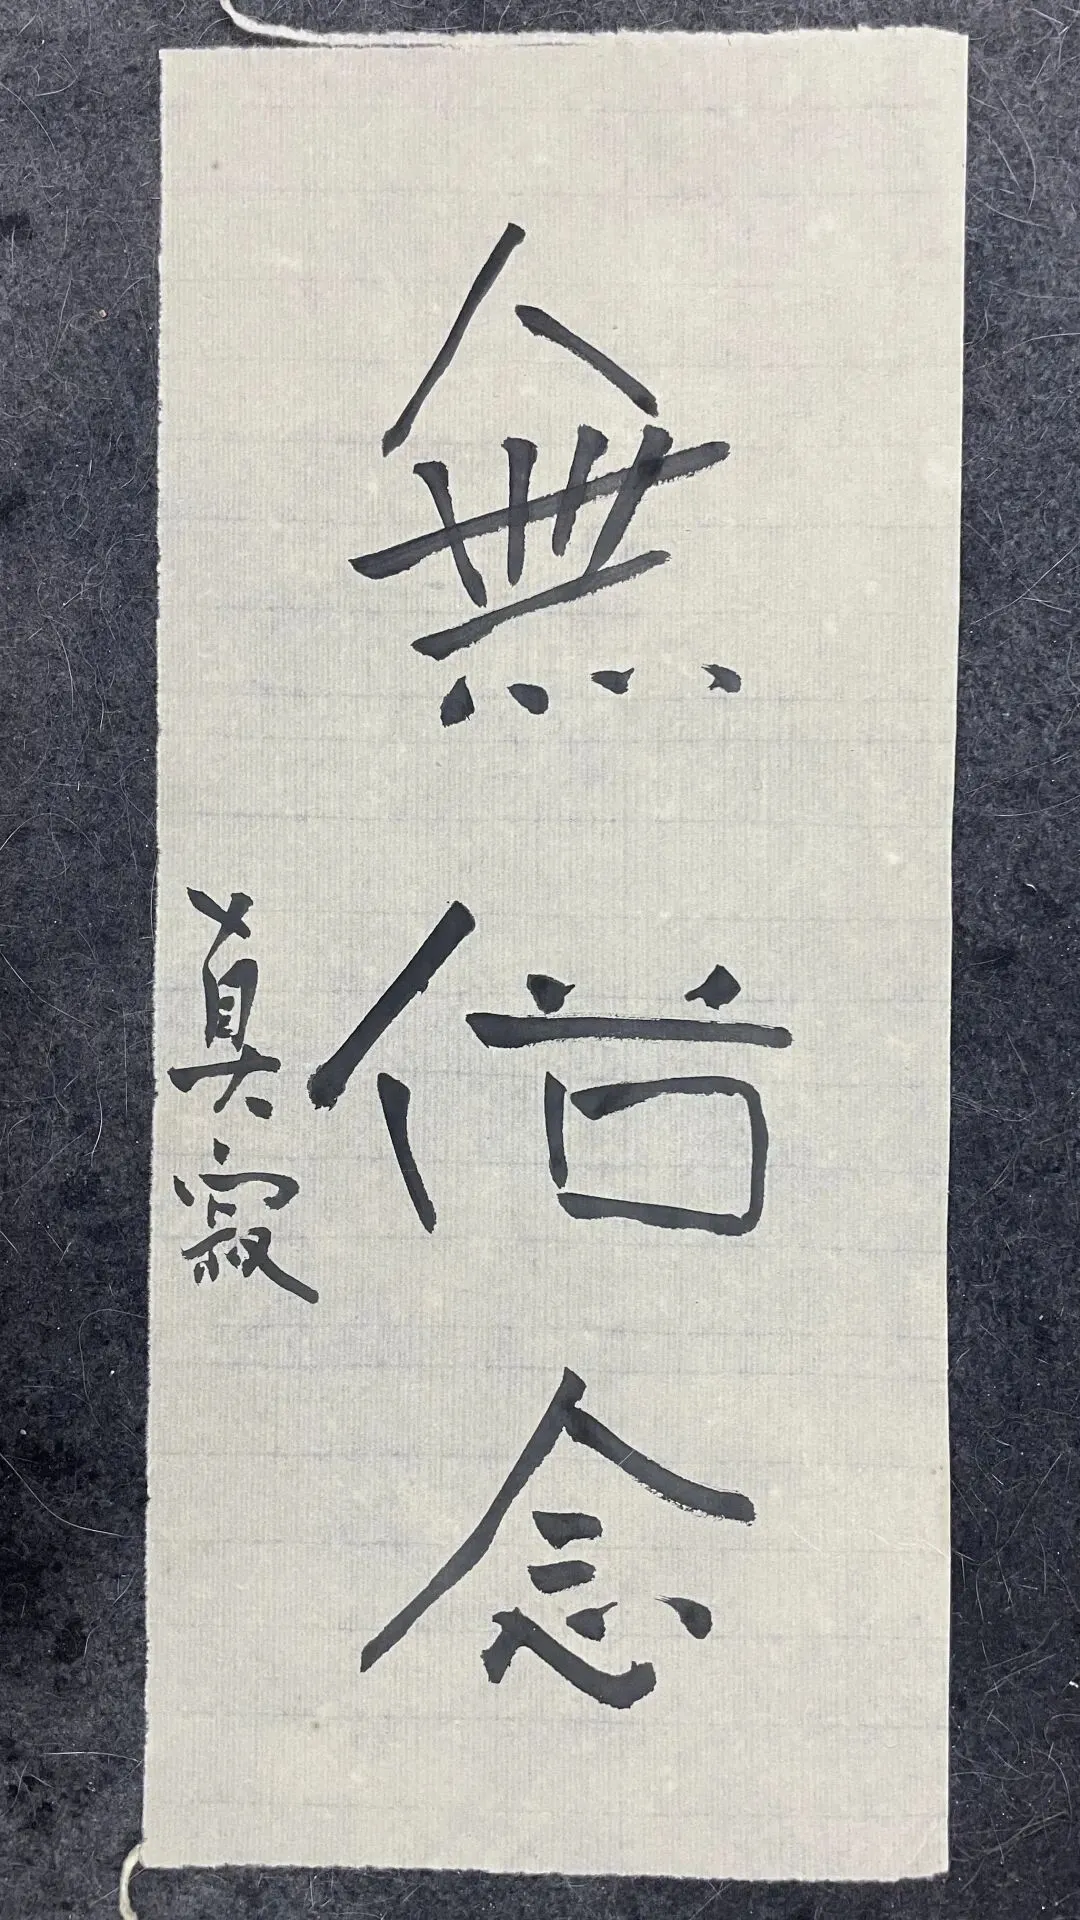 無信念
真寂